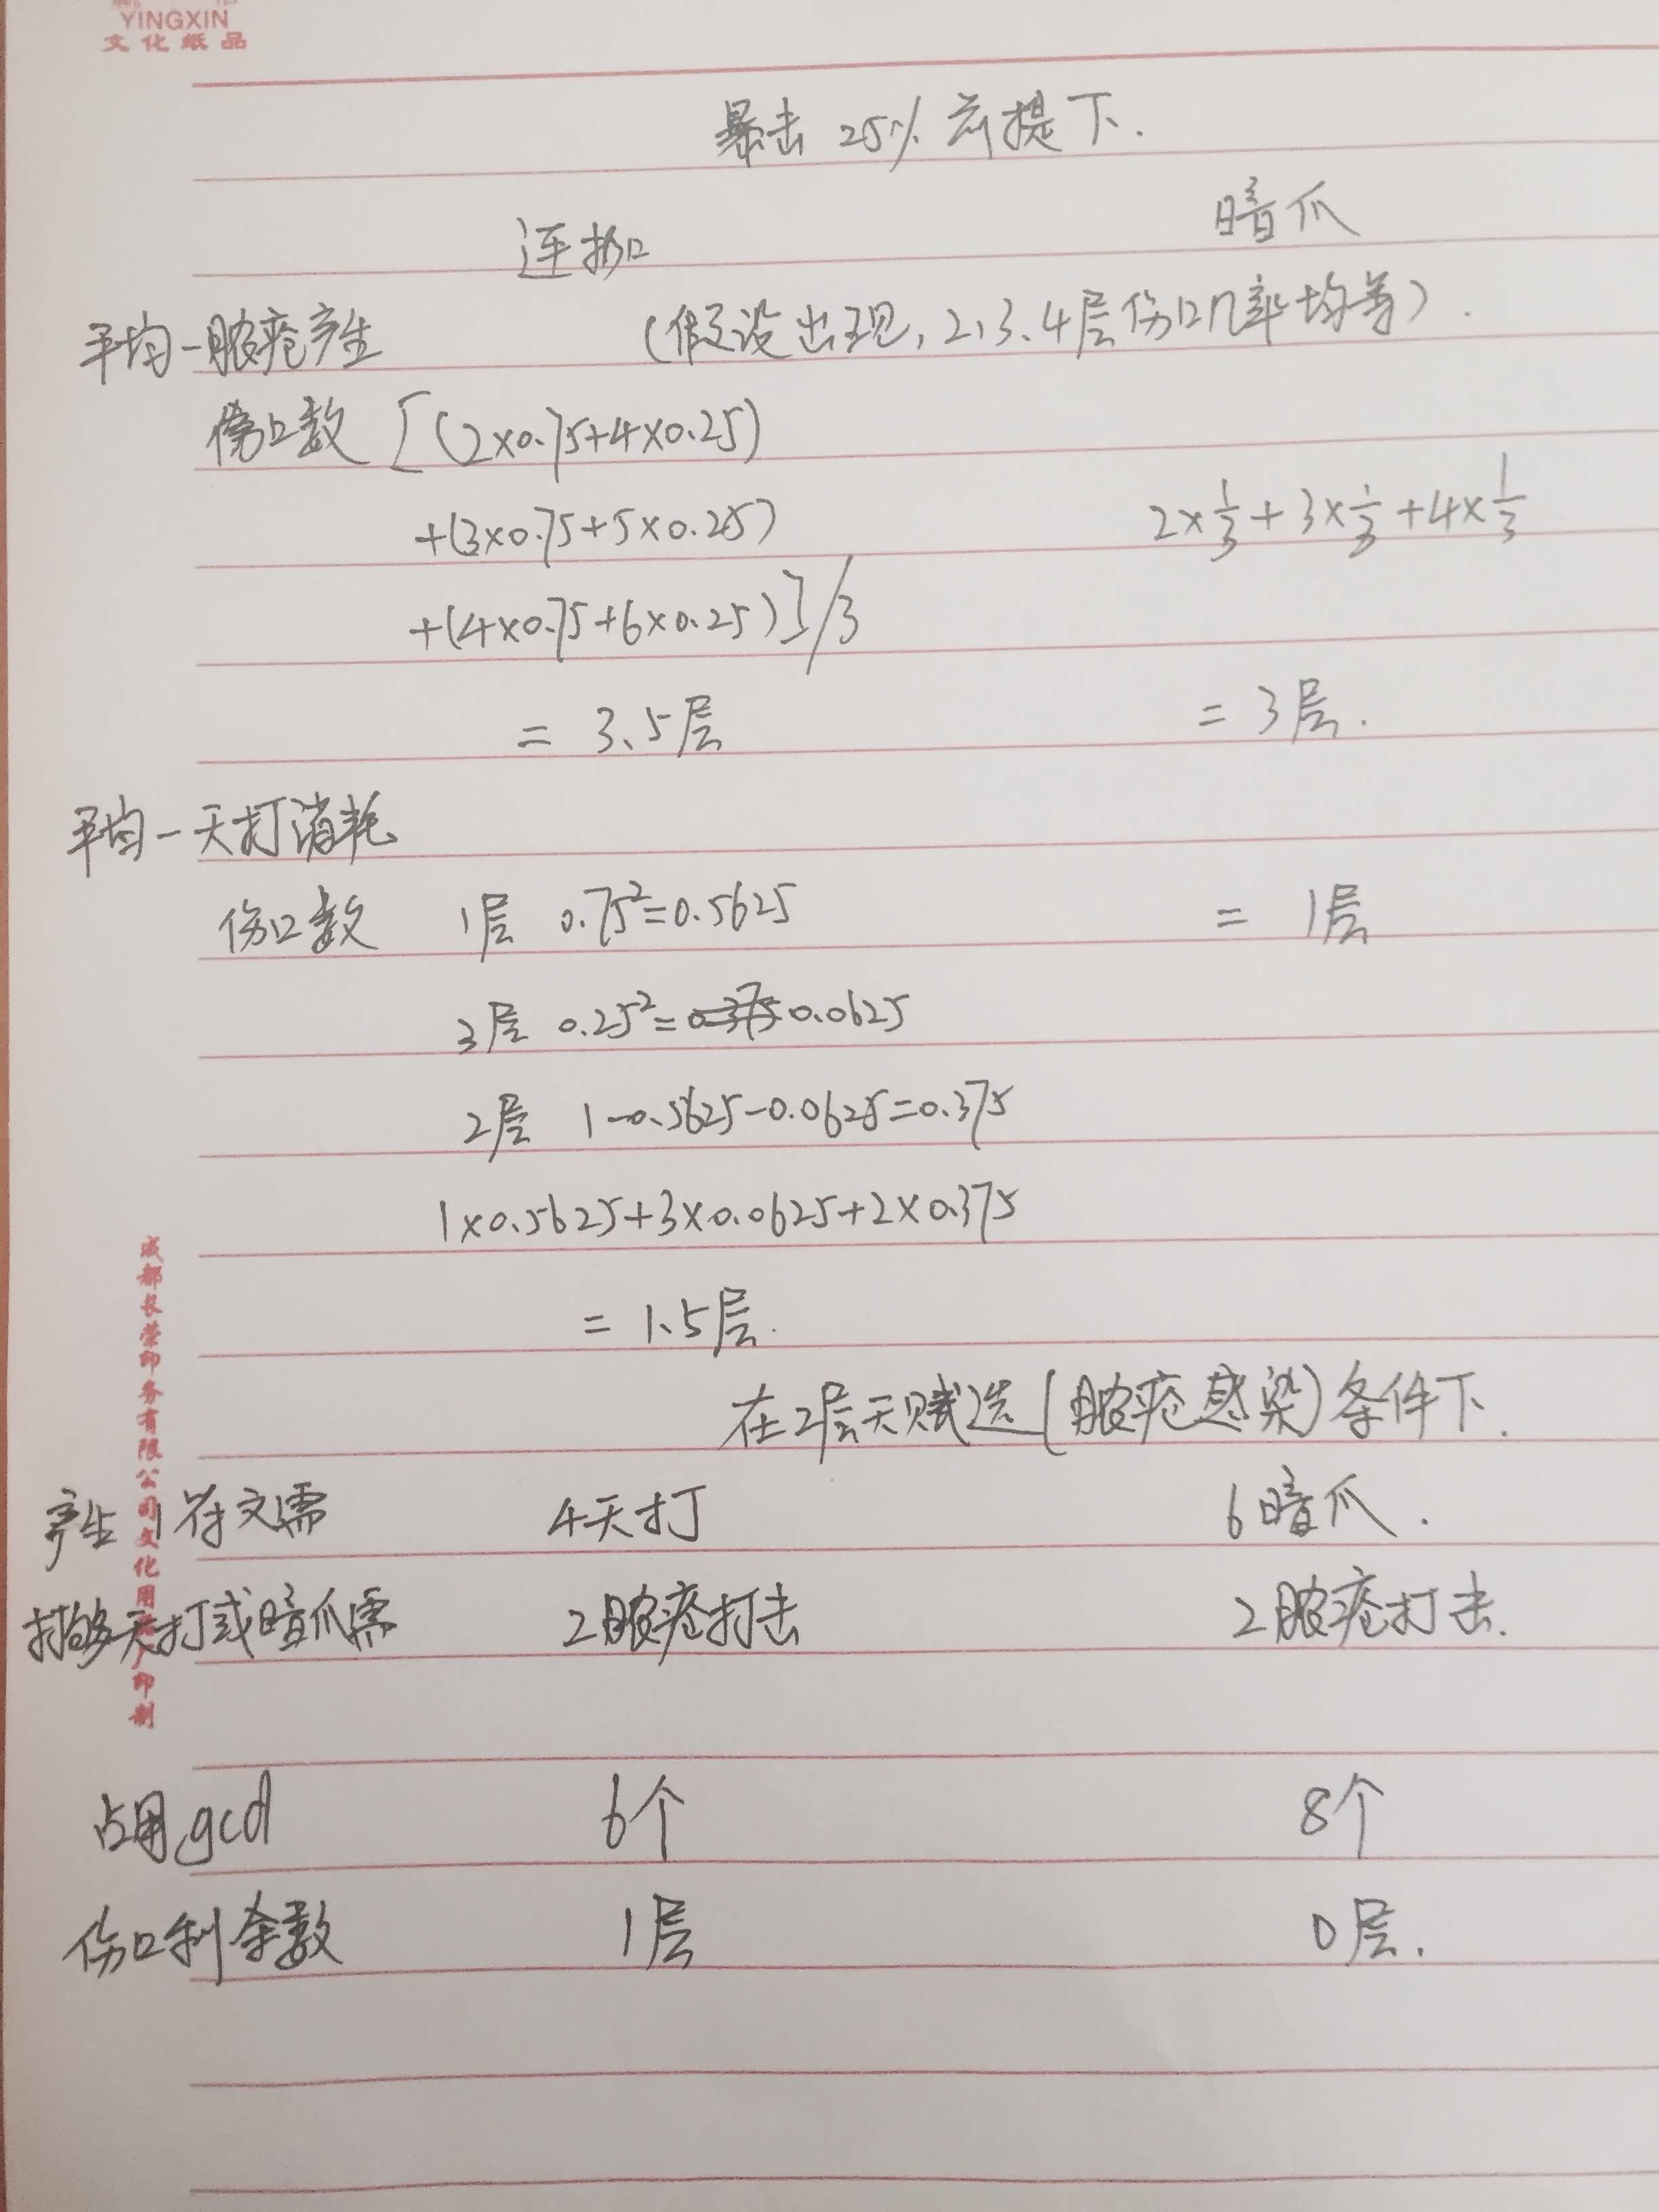 YINGXIN
文化纸品
暴击 25% 前提下.
连扣 暗爪
平均一脓疮产生 (假设出现,2,3、4层伤口几率均等).
伤口数 [(2×0.75+4×0.25)
+(3×0.75+5×0.25) 2×1/3+3×1/3+4×1/3
+(4×0.75+6×0.25)]/3
= 3、5层 = 3层.
平均一天打消耗
伤口数 1层 0.75²=0.5625 = 1层
3层 0.25²=0.375 0.0625
2层 1-0.5625-0.0625=0.375
1×0.5625+3×0.0625+2×0.375
= 1、5层.
在2层天赋选(脓疮感染)条件下.
产生1符文需 4天打 6暗爪.
打够天打或暗爪需 2脓疮打击 2脓疮打击.
占用gcd 6个 8个
伤口剩余数 1层 0层.
成都长荣印务有限公司文化用品厂印制